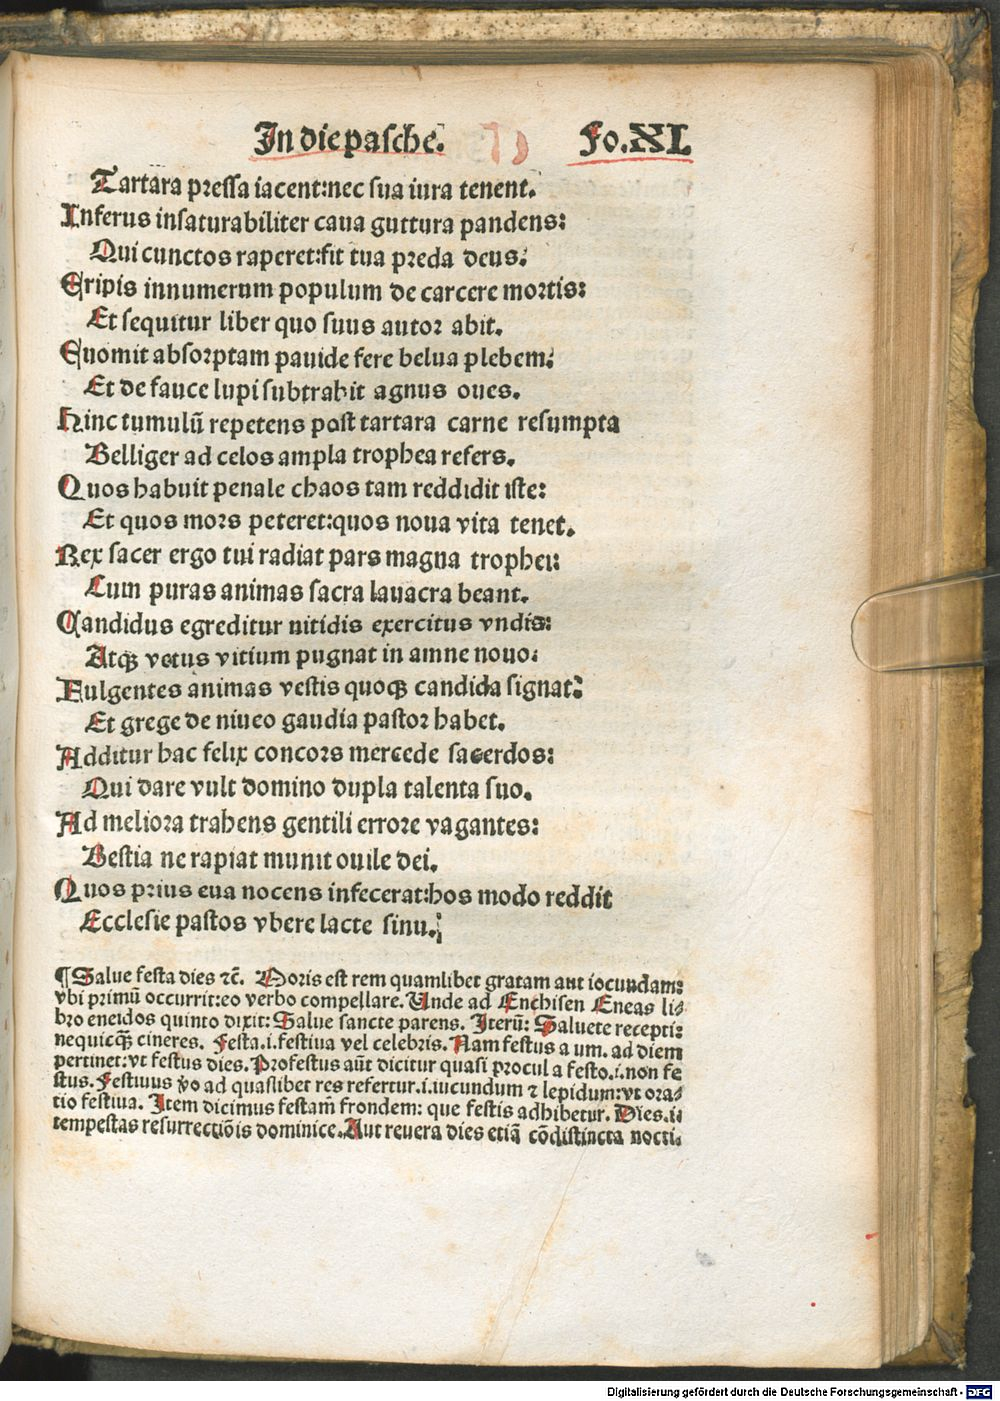 In die pasche. Fo.XL
Tartara pressa iacent:nec sua iura tenent.
Inferus insaturabiliter caua guttura pandens:
Qui cunctos raperet:fit tua preda deus.
Eripis innumerum populum de carcere mortis:
Et sequitur liber quo suus autor abit.
Euomit absorptam pauide fere belua plebem:
Et de fauce lupi subtrahit agnus oues.
Hinc tumulū repetens post tartara carne resumpta
Belliger ad celos ampla trophea refers.
Quos habuit penale chaos tam reddidit iste:
Et quos mors peteret:quos noua vita tenet.
Rex sacer ergo tui radiat pars magna trophei:
Cum puras animas sacra lauacra beant.
Candidus egreditur nitidis exercitus vndis:
Atqꝫ vetus vitium pugnat in amne nouo.
Fulgentes animas vestis quoqꝫ candida signat:
Et grege de niueo gaudia pastor habet.
Additur hac felix concors mercede sacerdos:
Qui dare vult domino dupla talenta suo.
Ad meliora trahens gentili errore vagantes:
Bestia ne rapiat munit ouile dei.
Quos prius eua nocens infecerat:hos modo reddit
Ecclesie pastos vbere lacte sinu.
¶ Salue festa dies ⁊c̄. Moris est rem quamlibet gratam aut iocundam:
vbi primū occurrit:eo verbo compellare. Unde ad Enchisen Eneas li⸗
bro eneidos quinto dixit: Salue sancte parens. Iterū: Saluete recepti:
nequicqꝫ cineres. Festa.i.festiua vel celebris. Nam festus a um. ad diem
pertinet:vt festus dies. Profestus aūt dicitur quasi procul a festo.i.non fe
stus. Festiuus v̄o ad quaslibet res refertur.i.iucundum ⁊ lepidum:vt ora⸗
tio festiua. Item dicimus festam̄ frondem: que festis adhibetur. Dies.i.
tempestas resurrectiōis dominice. Aut reuera dies etiā cōdistincta nocti.
Digitalisierung gefördert durch die Deutsche Forschungsgemeinschaft - DFG